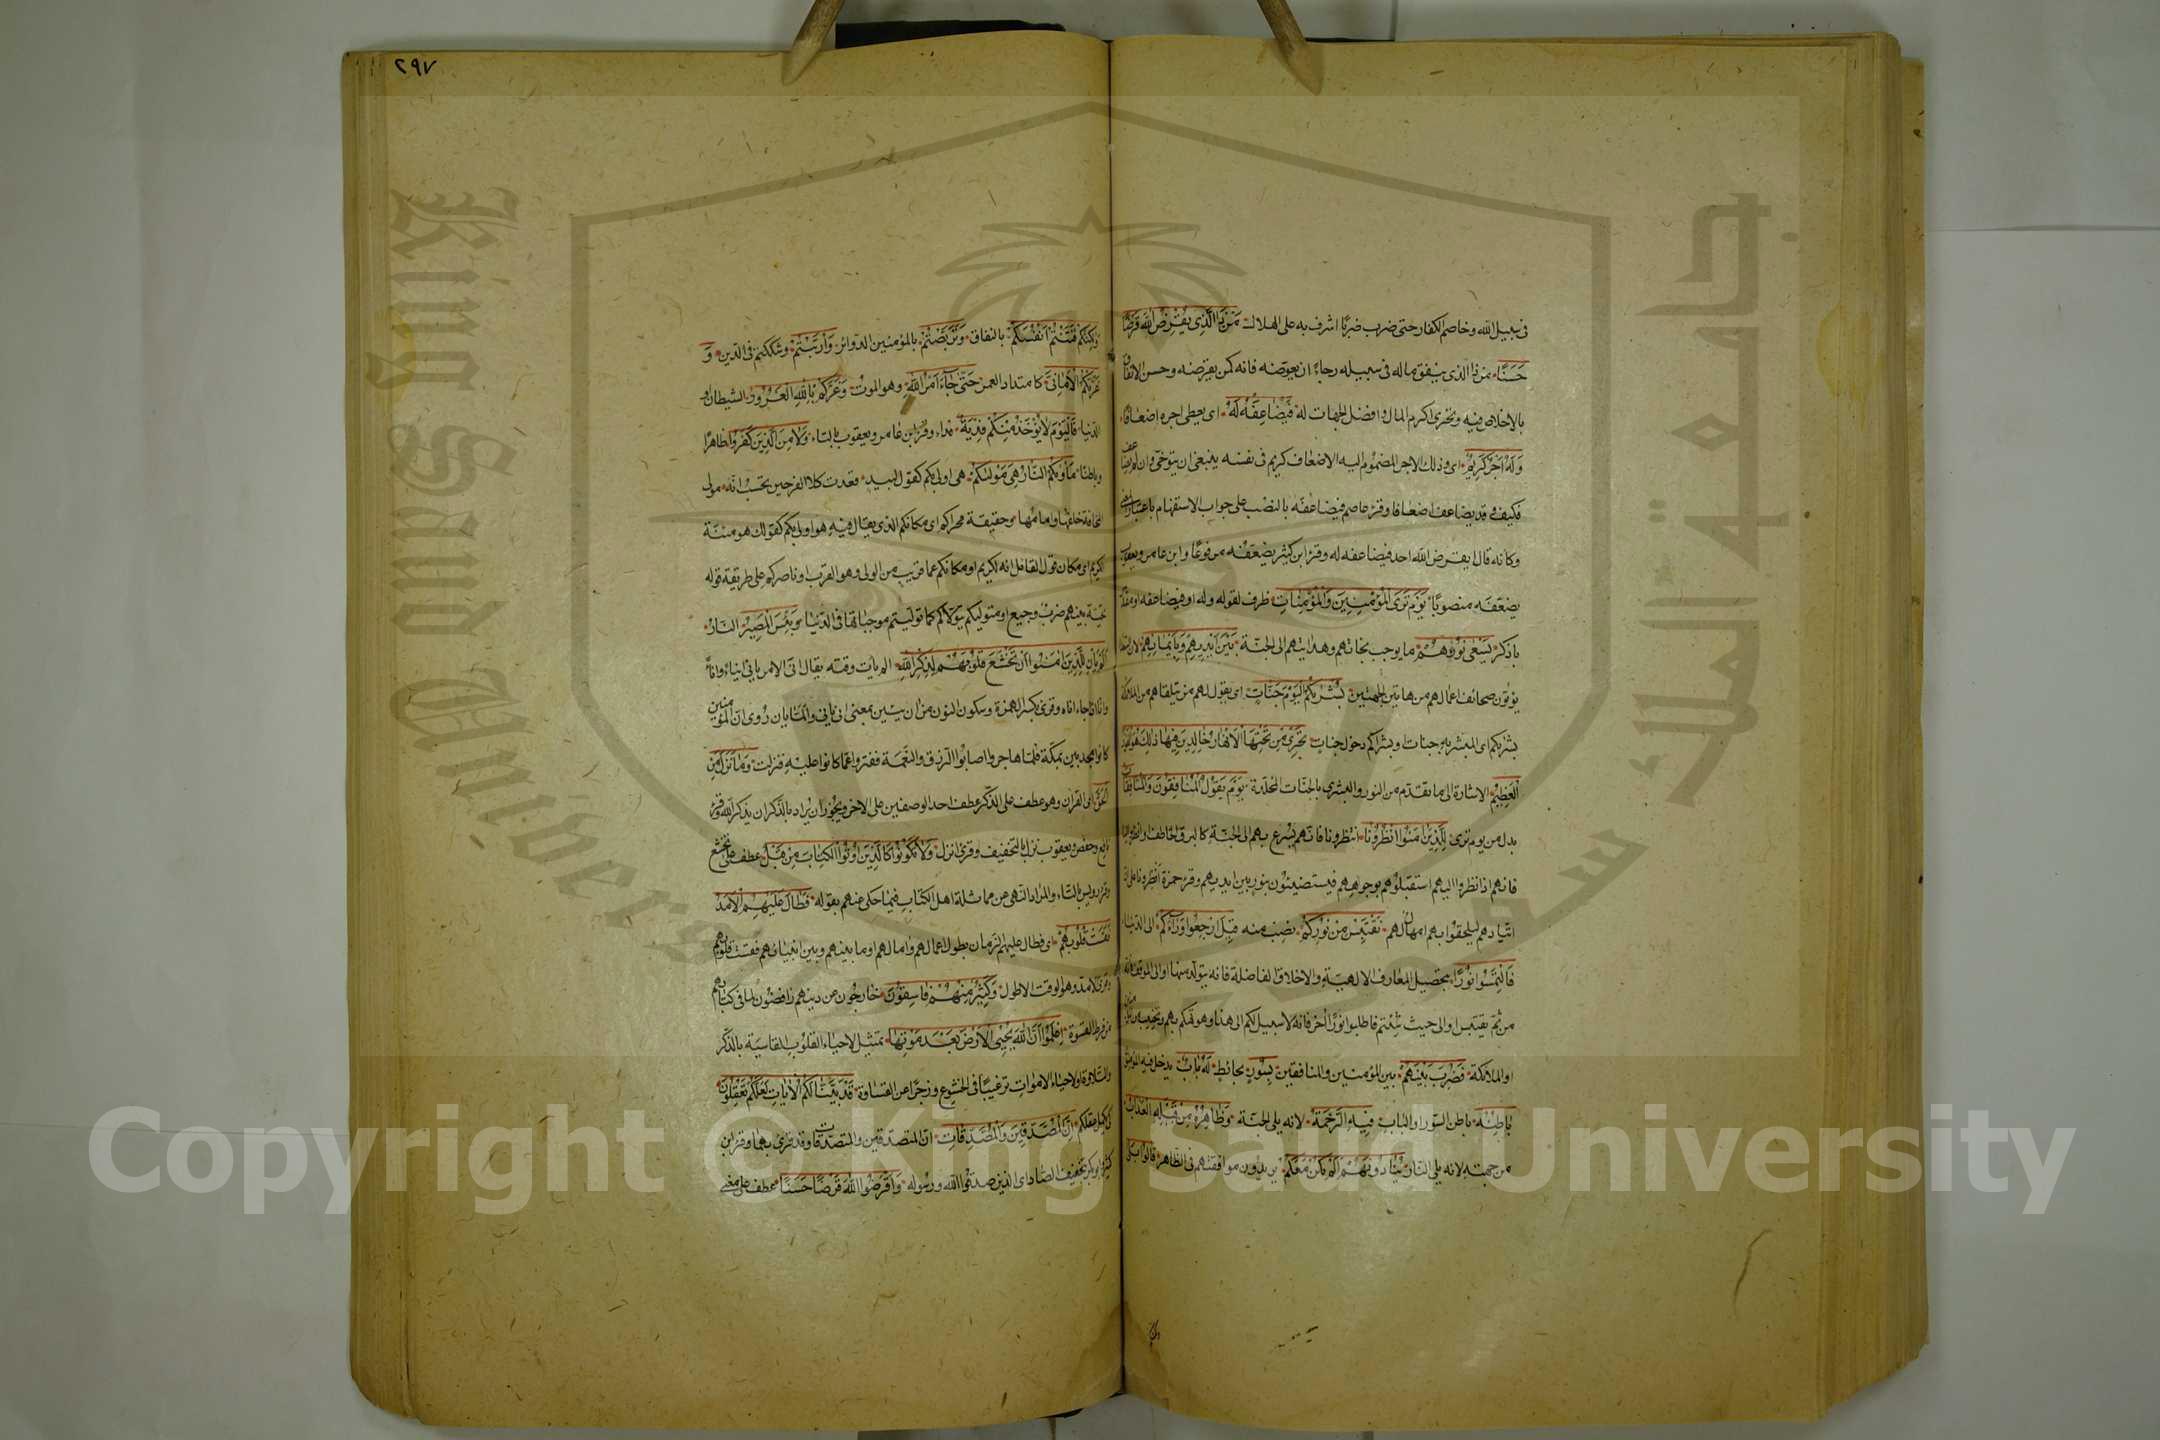 ٢٩٧
في سبيل الله وخاصم الكفار حتى ضرب ضربًا اشرف به على الهلاك مَنْ ذَا الَّذِي يُقْرِضُ اللهَ قَرْضًا
حَسَنًا من ذا الذي ينفق ماله في سبيله رجاء ان يعوضه فانه كمن يقرضه وحسن الانفاق
بالاخلاص فيه وتحري اكرم المال وافضل الجهات له فَيُضَاعِفَهُ لَهُ اى يعطي اجره اضعافا
وَلَهُ أَجْرٌ كَرِيمٌ اى وذلك الاجر المضموم اليه الاضعاف كريم في نفسه ينبغي ان يتوخى وان لم يضاعف
فكيف وقد يضاعف اضعافا وقرء عاصم فيضاعفه بالنصب على جواب الاستفهام باعتبار المعنى
وكانه قال ايقرض الله احد فيضاعفه له وقرء ابن كثير يضعفه مرفوعًا وابن عامر ويعقوب
يضعفه منصوبًا يَوْمَ تَرَى الْمُؤْمِنِينَ وَالْمُؤْمِنَاتِ ظرف لقوله وله او فيضاعفه او مقدر
باذكر يَسْعَى نُورُهُمْ ما يوجب نجاتهم وهدايتهم الى الجنة بَيْنَ أَيْدِيهِمْ وَبِأَيْمَانِهِمْ لان السعداء
يؤتون صحائف اعمالهم من هاتين الجهتين بُشْرَاكُمُ الْيَوْمَ جَنَّاتٌ اى يقول لهم من يتلقاهم من الملائكة
بشراكم اى المبشر به جنات او بشراكم دخول جنات تَجْرِي مِنْ تَحْتِهَا الْأَنْهَارُ خَالِدِينَ فِيهَا ذَلِكَ هُوَ الْفَوْزُ
الْعَظِيمُ الاشارة الى ما تقدم من النور والبشرى بالجنات المخلدة يَوْمَ يَقُولُ الْمُنَافِقُونَ وَالْمُنَافِقَاتُ
بدل من يوم ترى لِلَّذِينَ آمَنُوا انْظُرُونَا انتظرونا فانهم يسرع بهم الى الجنة كالبرق الخاطف وانظروا الينا
فانهم اذا نظروا اليهم استقبلوهم بوجوههم فيستضيئون بنور بين ايديهم وقرء حمزة انظرونا على ان
اتيادهم ليلحقوا بهم امهال لهم نَقْتَبِسْ مِنْ نُورِكُمْ نصب منه قِيلَ ارْجِعُوا وَرَاءَكُمْ الى الدنيا
فَالْتَمِسُوا نُورًا بتحصيل المعارف الالهية والاخلاق الفاضلة فانه يتولد منها او الى الموقف فانه
من ثم يقتبس او الى حيث شئتم فاطلبوا نورًا آخر فانه لا سبيل لكم الى هذا وهو تهكم بهم وتخييب من المؤمنين
او الملائكة فَضُرِبَ بَيْنَهُمْ بين المؤمنين والمنافقين بِسُورٍ بحائط لَهُ بَابٌ يدخل فيه المؤمنون
بَاطِنُهُ باطن السور او الباب فِيهِ الرَّحْمَةُ لانه يلي الجنة وَظَاهِرُهُ مِنْ قِبَلِهِ الْعَذَابُ
من جهته لانه يلي النار يُنَادُونَهُمْ أَلَمْ نَكُنْ مَعَكُمْ يريدون موافقتهم في الظاهر قَالُوا بَلَى
وَلَكِنَّكُمْ فَتَنْتُمْ أَنْفُسَكُمْ بالنفاق وَتَرَبَّصْتُمْ بالمؤمنين الدوائر وَارْتَبْتُمْ وشككتم في الدين وَ
غَرَّتْكُمُ الْأَمَانِيُّ كامتداد العمر حَتَّى جَاءَ أَمْرُ اللهِ وهو الموت وَغَرَّكُمْ بِاللهِ الْغَرُورُ الشيطان او
الدنيا فَالْيَوْمَ لَا يُؤْخَذُ مِنْكُمْ فِدْيَةٌ فداء وقرء ابن عامر ويعقوب بالتاء وَلَا مِنَ الَّذِينَ كَفَرُوا ظاهرًا
وباطنًا مَأْوَاكُمُ النَّارُ هِيَ مَوْلَاكُمْ هى اولى بكم كقول لبيد فغدت كلا الفرجين تحسب انه مولى
المخافة خلفها وامامها وحقيقته محراكم اى مكانكم الذى يقال فيه هو اولى بكم كقولك هو مئنة
الكرم اى مكان قول القائل انه لكريم او مكانكم عما قريب من الولى وهو القرب او ناصركم على طريقة قوله
تحية بينهم ضرب وجيع او متوليكم يتولاكم كما توليتم موجباتها في الدنيا وَبِئْسَ الْمَصِيرُ النار
أَلَمْ يَأْنِ لِلَّذِينَ آمَنُوا أَنْ تَخْشَعَ قُلُوبُهُمْ لِذِكْرِ اللهِ الم يأت وقته يقال انى الامر يانى انيا وانا
وانا اذا جاء اناه وقرئ بكسر الهمزة وسكون النون من ان يئين بمعنى انى يانى والمّا يان روى ان المؤمنين
كانوا مجدبين بمكة فلما هاجروا اصابوا الرزق والنعمة ففتروا عما كانوا عليه فنزلت وَمَا نَزَلَ مِنَ
الْحَقِّ اى القرآن وهو عطف على الذكر عطف احد الوصفين على الاخر ويجوز ان يراد بالذكر ان يذكر الله وقرء
نافع وحفص ويعقوب نزل بالتخفيف وقرئ انزل وَلَا يَكُونُوا كَالَّذِينَ أُوتُوا الْكِتَابَ مِنْ قَبْلُ عطف على تخشع
وقرء رويس بالتاء والمراد النهي عن مماثلة اهل الكتاب فيما حكى عنهم بقوله فَطَالَ عَلَيْهِمُ الْأَمَدُ
فَقَسَتْ قُلُوبُهُمْ اى فطال عليهم الزمان بطول اعمالهم وامالهم او ما بينهم وبين انبيائهم فقست قلوبهم
وقرئ الامدّ وهو الوقت الاطول وَكَثِيرٌ مِنْهُمْ فَاسِقُونَ خارجون عن دينهم رافضون لما في كتابهم
من فرط القسوة اعْلَمُوا أَنَّ اللهَ يُحْيِي الْأَرْضَ بَعْدَ مَوْتِهَا تمثيل لاحياء القلوب القاسية بالذكر
والتلاوة او لاحياء الاموات ترغيبًا في الخشوع وزجرًا عن القساوة قَدْ بَيَّنَّا لَكُمُ الْآيَاتِ لَعَلَّكُمْ تَعْقِلُونَ
كى يكمل عقلكم إِنَّ الْمُصَّدِّقِينَ وَالْمُصَّدِّقَاتِ ان المتصدقين والمتصدقات وقد قرئ بهما وقرء ابن
كثير وابو بكر بتخفيف الصاد اى الذين صدقوا الله ورسوله وَأَقْرَضُوا اللهَ قَرْضًا حَسَنًا عطف على معنى
King Saud University
جامعة الملك سعود
Copyright © King Saud University